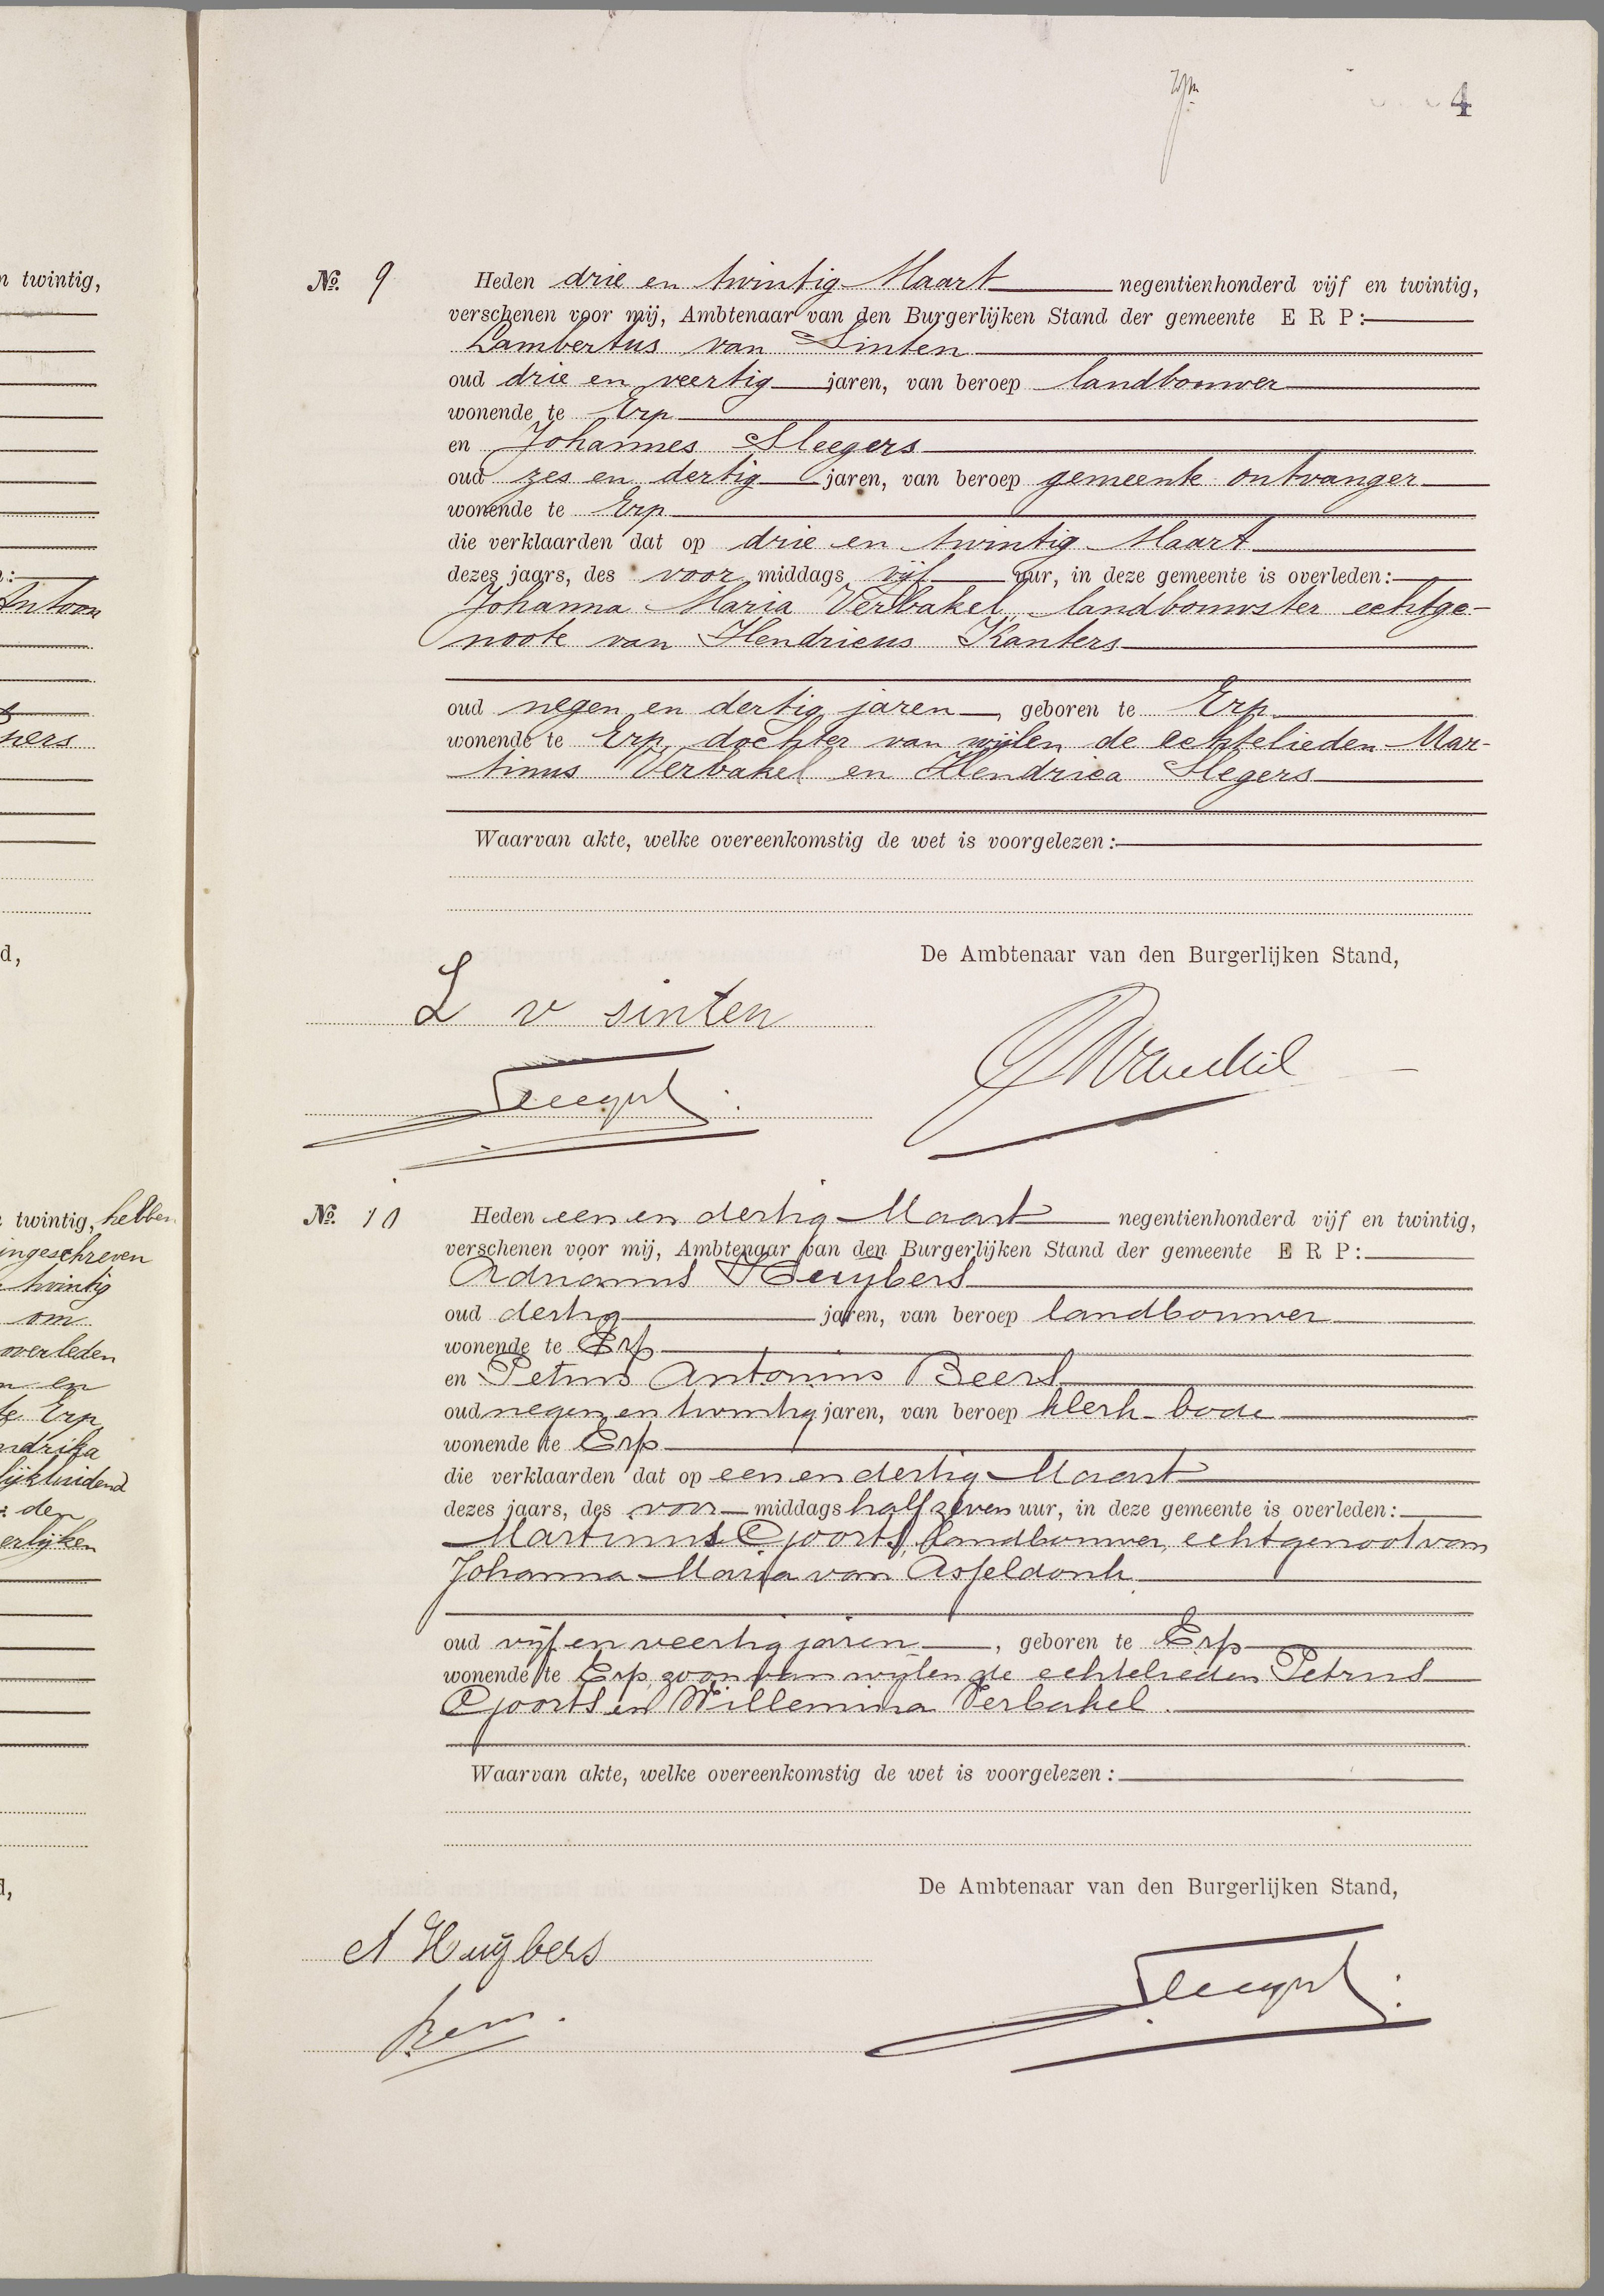 4
n twintig,
Antoon
ners
d,
twintig, hebben
ingeschreven
twintig
om
overleden
en
te Erp
ndrika
lijkluidend
den
erlijken
d,
No. 9 Heden drie en twintig Maart negentienhonderd vijf en twintig,
verschenen voor mij, Ambtenaar van den Burgerlijken Stand der gemeente E R P:
Lambertus van Sinten
oud drie en veertig jaren, van beroep landbouwer
wonende te Erp
en Johannes Sleegers
oud zes en dertig jaren, van beroep gemeente ontvanger
wonende te Erp
die verklaarden dat op drie en twintig Maart
dezes jaars, des voor middags vijf uur, in deze gemeente is overleden:
Johanna Maria Verbakel, landbouwster echtge-
noote van Hendricus Kanters
oud negen en dertig jaren, geboren te Erp
wonende te Erp, dochter van wijlen de echtelieden Mar-
tinus Verbakel en Hendrica Slegers
Waarvan akte, welke overeenkomstig de wet is voorgelezen:
De Ambtenaar van den Burgerlijken Stand,
L v sinten
No. 10 Heden een en dertig Maart negentienhonderd vijf en twintig,
verschenen voor mij, Ambtenaar van den Burgerlijken Stand der gemeente E R P:
Adrianus Huijbers
oud dertig jaren, van beroep landbouwer
wonende te Erp
en Petrus Antonius Beers
oud negen en twintig jaren, van beroep klerk-bode
wonende te Erp
die verklaarden dat op een en dertig Maart
dezes jaars, des voor middags half zeven uur, in deze gemeente is overleden:
Martinus Opoorts, landbouwer, echtgenoot van
Johanna Maria van Asseldonk
oud vijf en veertig jaren, geboren te Erp
wonende te Erp, zoon van wijlen de echtelieden Petrus
Opoorts en Willemina Verbakel.
Waarvan akte, welke overeenkomstig de wet is voorgelezen:
De Ambtenaar van den Burgerlijken Stand,
A Huijbers